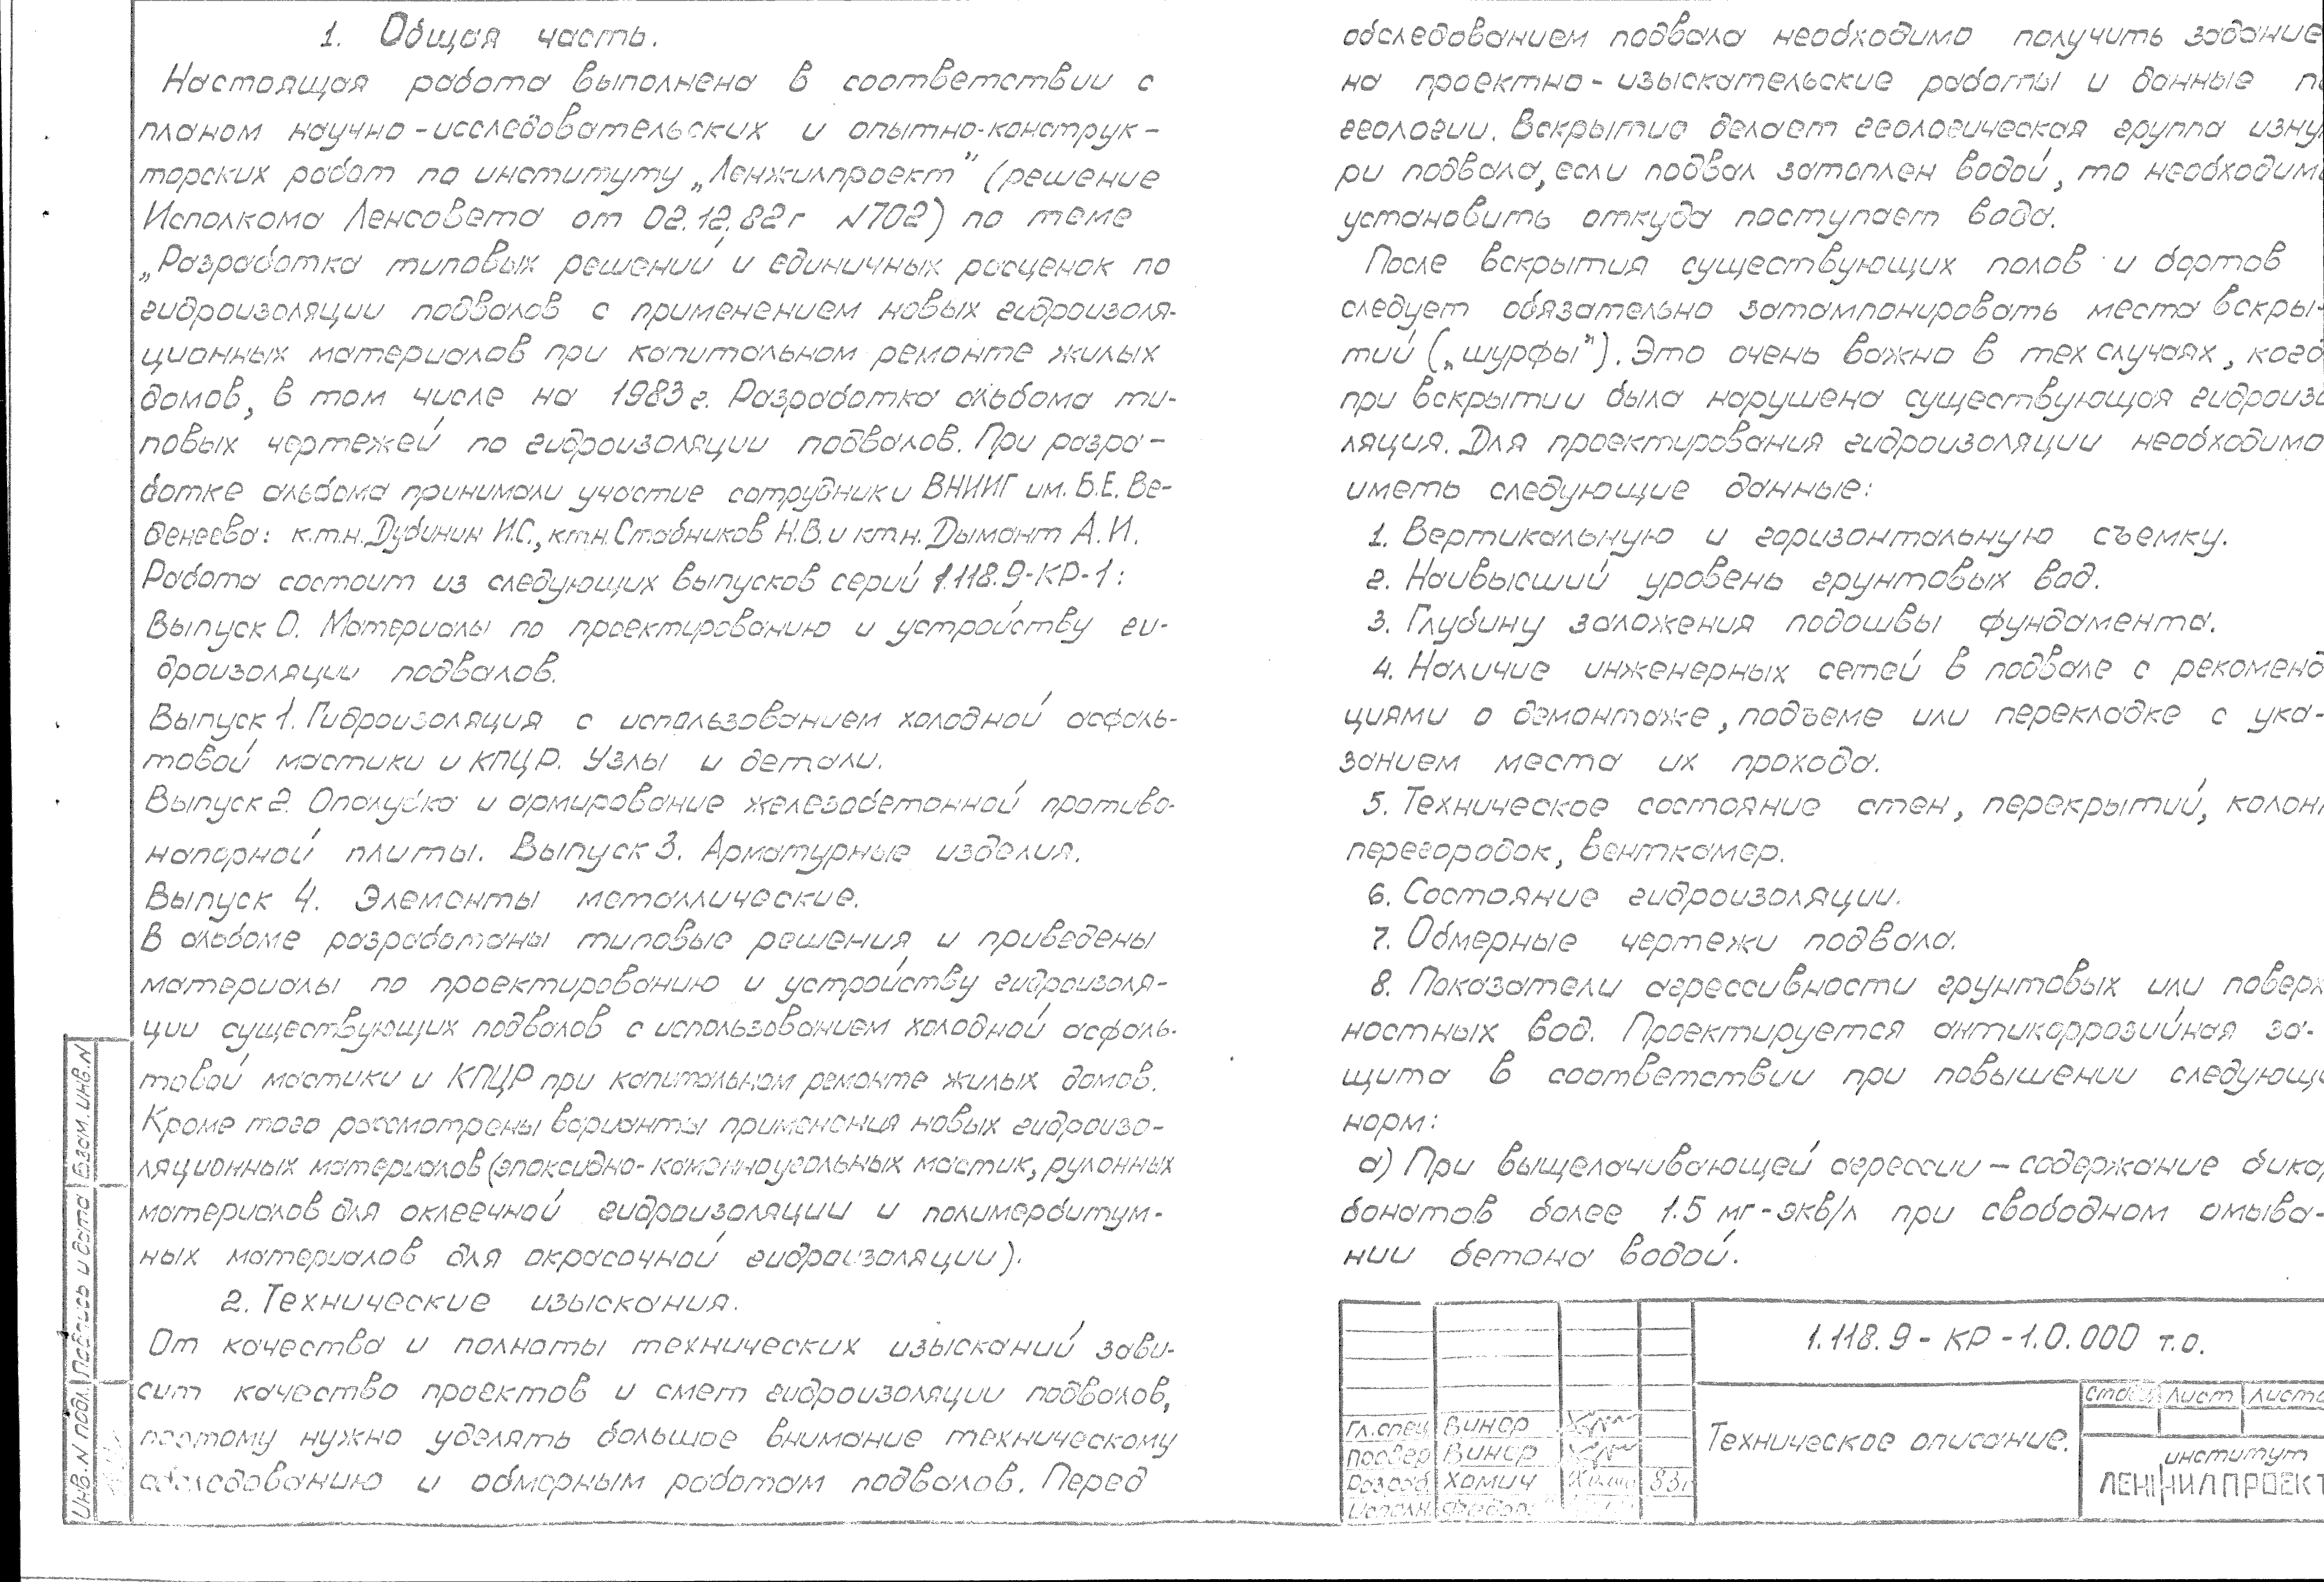 1. Общая часть.
Настоящая работа выполнена в соответствии с
планом научно-исследовательских и опытно-конструк-
торских работ по институту „Ленжилпроект" (решение
Исполкома Ленсовета от 02.12.82г N702) по теме
„Разработка типовых решений и единичных расценок по
гидроизоляции подвалов с применением новых гидроизоля-
ционных материалов при капитальном ремонте жилых
домов, в том числе на 1983г. Разработка альбома ти-
повых чертежей по гидроизоляции подвалов. При разра-
ботке альбома принимали участие сотрудники ВНИИГ им. Б.Е. Ве-
денеева: к.т.н. Дубинин И.С., к.т.н. Стабников Н.В. и к.т.н. Дымант А.И.
Работа состоит из следующих выпусков серий 1.118.9-КР-1:
Выпуск 0. Материалы по проектированию и устройству ги-
дроизоляции подвалов.
Выпуск 1. Гидроизоляция с использованием холодной асфаль-
товой мастики и КПЦР. Узлы и детали.
Выпуск 2. Опалубка и армирование железобетонной противо-
напорной плиты. Выпуск 3. Арматурные изделия.
Выпуск 4. Элементы металлические.
В альбоме разработаны типовые решения и приведены
материалы по проектированию и устройству гидроизоля-
ции существующих подвалов с использованием холодной асфаль-
товой мастики и КПЦР при капитальном ремонте жилых домов.
Кроме того рассмотрены варианты применения новых гидроизо-
ляционных материалов (эпоксидно-каменноугольных мастик, рулонных
материалов для оклеечной гидроизоляции и полимербитум-
ных материалов для окрасочной гидроизоляции).
2. Технические изыскания.
От качества и полноты технических изысканий зави-
сит качество проектов и смет гидроизоляции подвалов,
поэтому нужно уделять большое внимание техническому
обследованию и обмерным работам подвалов. Перед
обследованием подвала необходимо получить задание
на проектно-изыскательские работы и данные по
геологии. Вскрытие делает геологическая группа изну
ри подвала, если подвал затоплен водой, то необходим
установить откуда поступает вода.
После вскрытия существующих полов и бортов
следует обязательно затампонировать места вскры-
тий („шурфы"). Это очень важно в тех случаях, когд
при вскрытии была нарушена существующая гидроизо
ляция. Для проектирования гидроизоляции необходимо
иметь следующие данные:
1. Вертикальную и горизонтальную съемку.
2. Наивысший уровень грунтовых вод.
3. Глубину заложения подошвы фундамента.
4. Наличие инженерных сетей в подвале с рекоменд
циями о демонтаже, подъеме или перекладке с ука-
занием места их прохода.
5. Техническое состояние стен, перекрытий, колонн
перегородок, венткамер.
6. Состояние гидроизоляции.
7. Обмерные чертежи подвала.
8. Показатели агрессивности грунтовых или поверх
ностных вод. Проектируется антикоррозийная за-
щита в соответствии при повышении следующи
норм:
а) При выщелачивающей агрессии – содержание бикар
бонатов более 1.5 мг-экв/л при свободном омыва-
нии бетона водой.
1.118.9-КР-1.0.000 т.о.
Стадия Лист Листо
Гл.спец Винер
Провер Винер
Разраб. Хомич 83г
Исполн.
Техническое описание.
институт
ЛЕНЖИЛПРОЕКТ
Инв.N подл. Подпись и дата Взам.инв.N